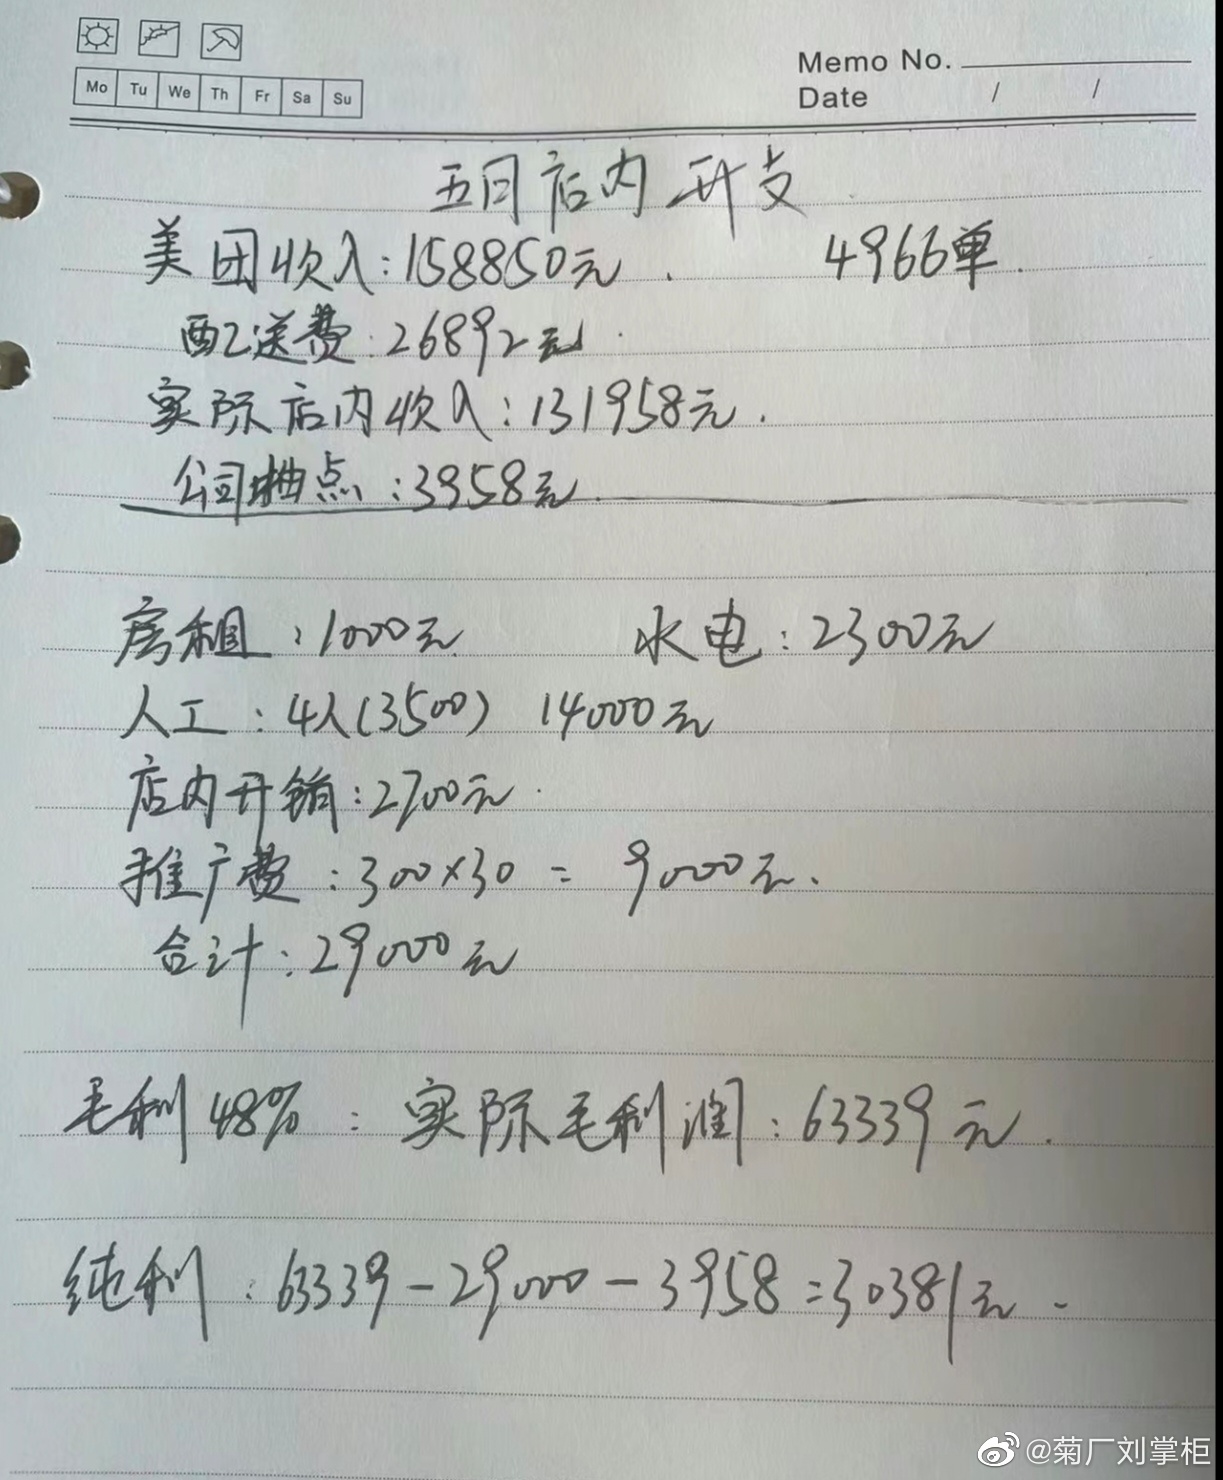 Mo Tu We Th Fr Sa Su
Memo No.
Date / /
五月店内开支
美团收入:158850元. 4966单.
配送费:26892元.
实际店内收入:131958元.
公司抽点:3958元.
房租:1000元 水电:2300元
人工:4人(3500) 14000元
店内开销:2700元.
推广费:300×30=9000元.
合计:29000元
毛利48%:实际毛利润:63339元.
纯利:63339-29000-3958=30381元.
@菊厂刘掌柜